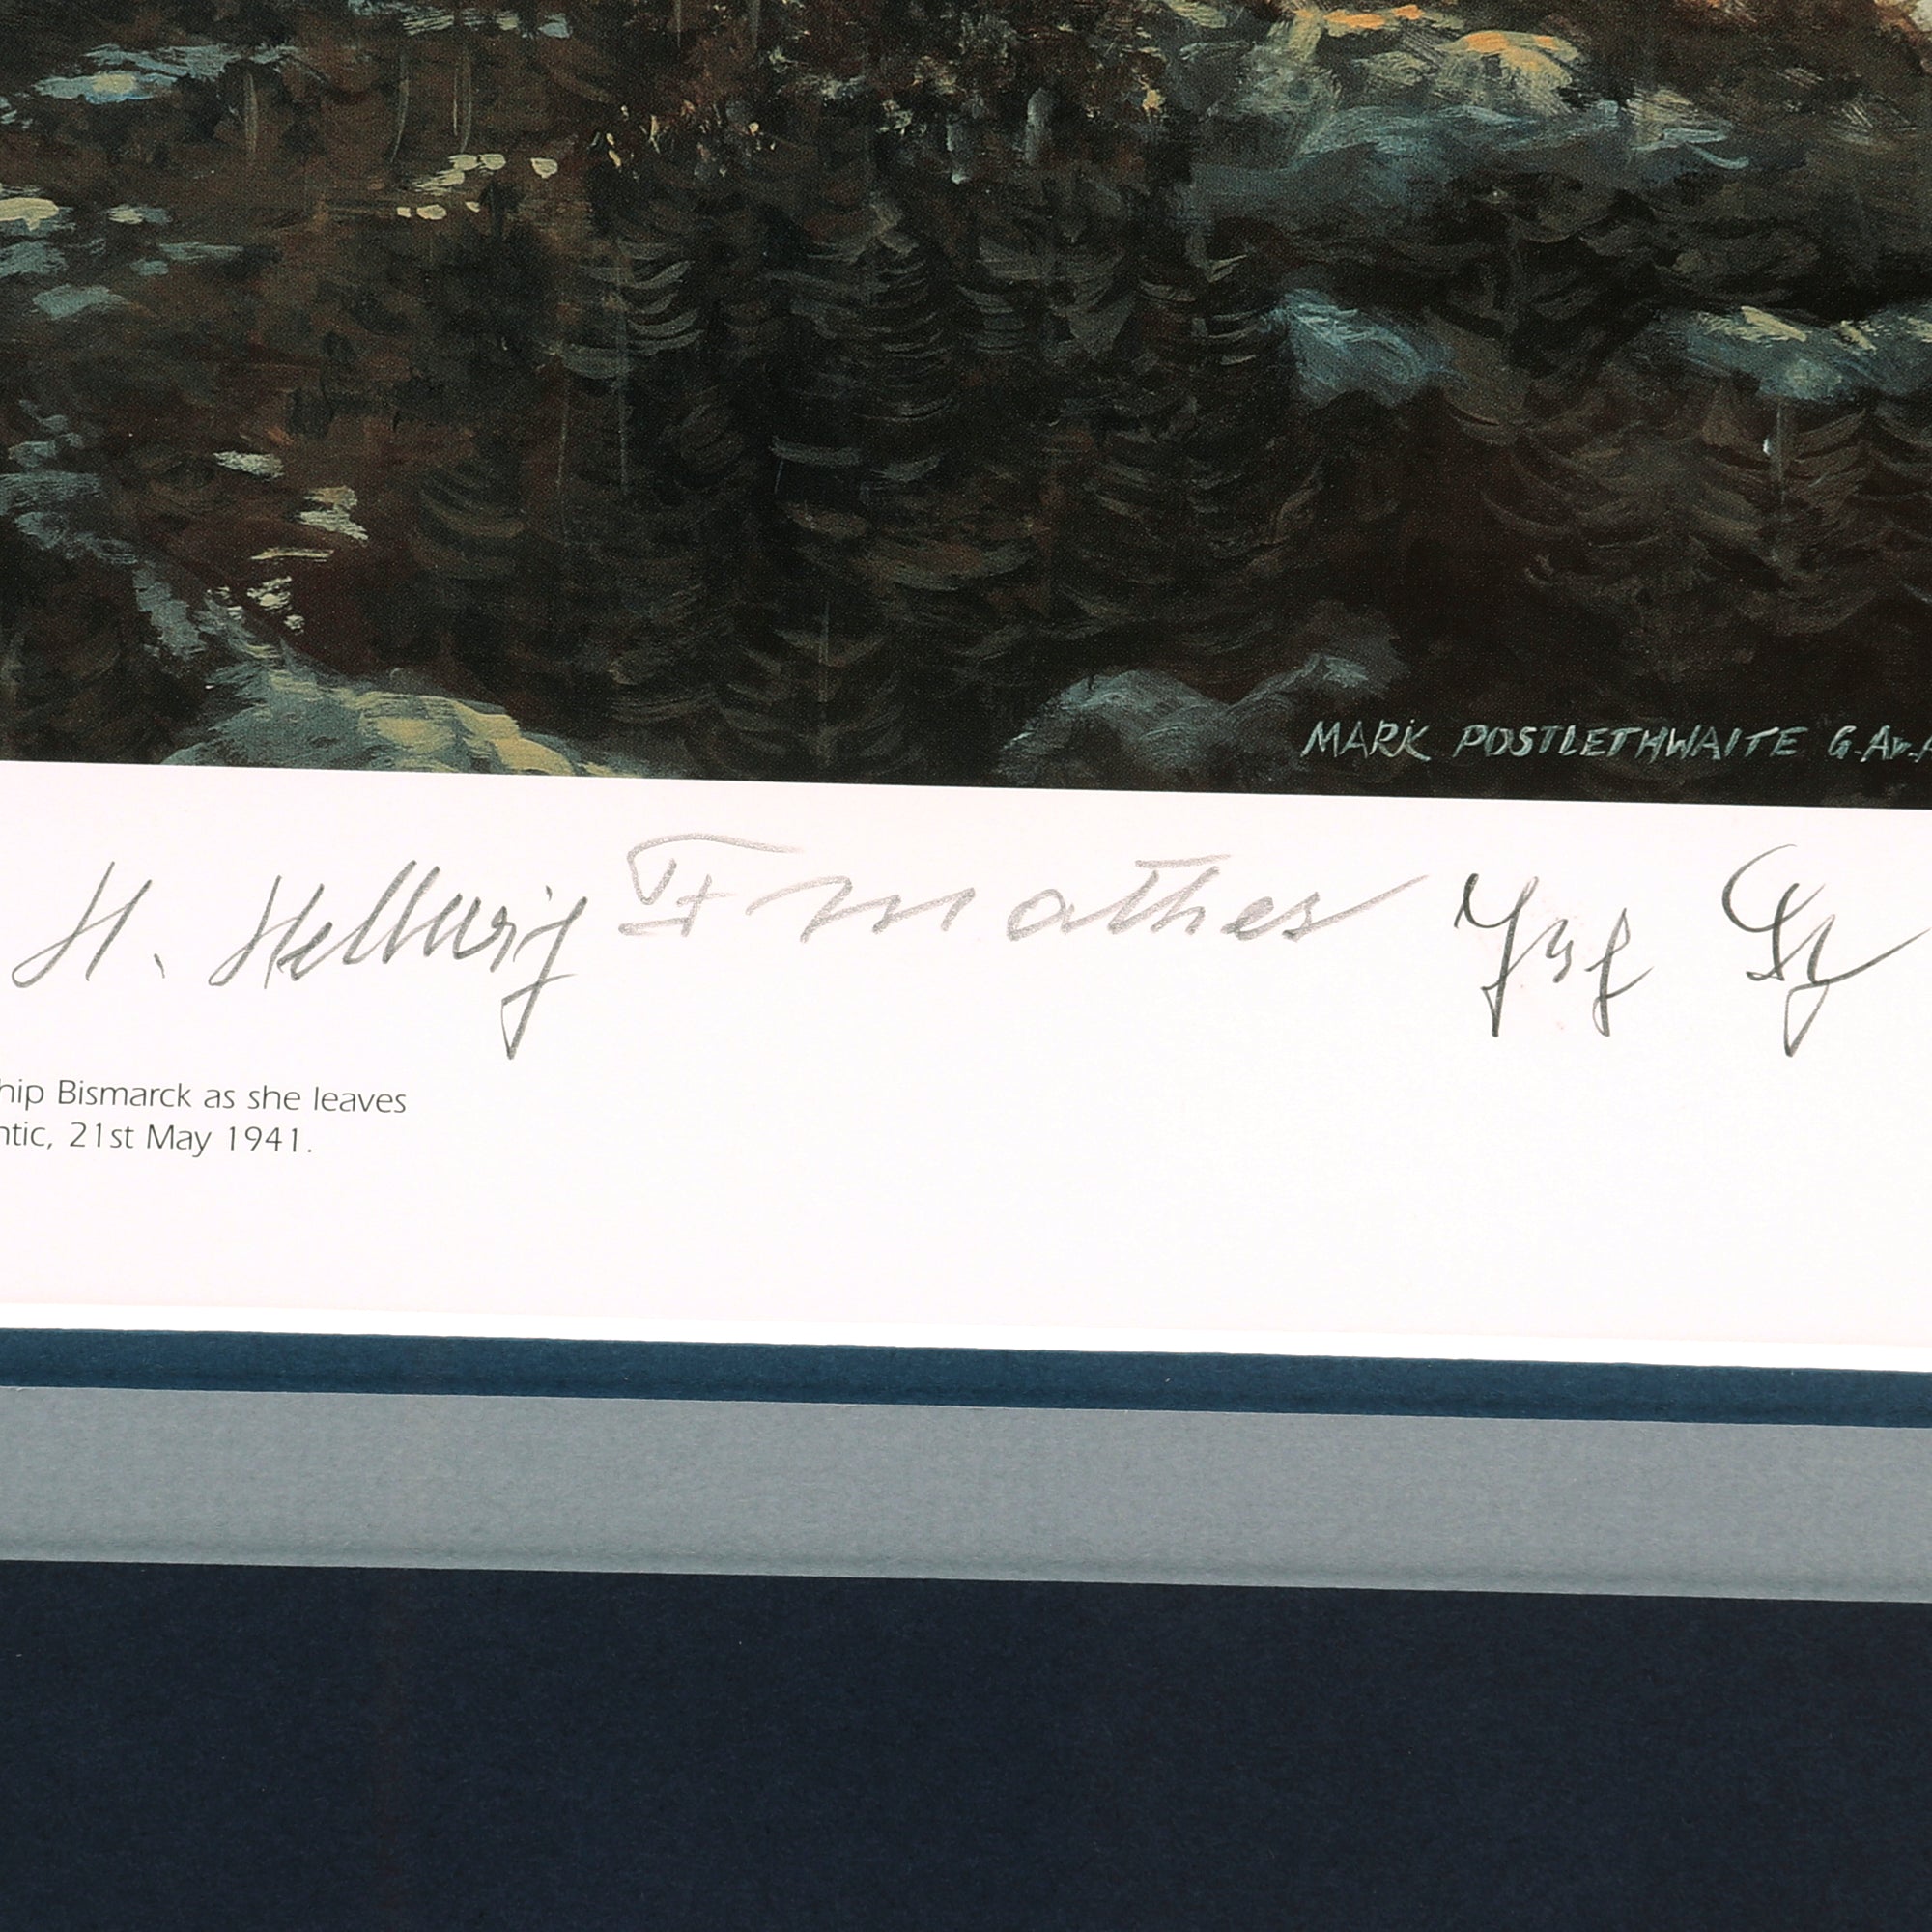 MARK POSTLETHWAITE G.Av.A
H. Hellwig F mathes
hip Bismarck as she leaves
ntic, 21st May 1941.